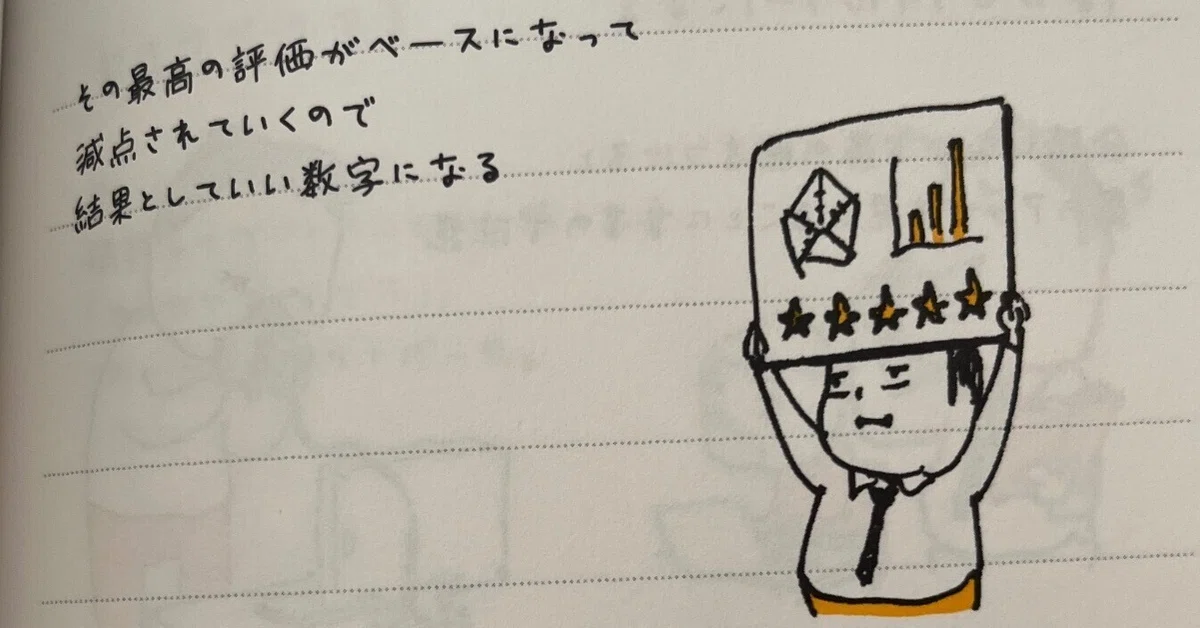 その最高の評価がベースになって
減点されていくので
結果としていい数字になる